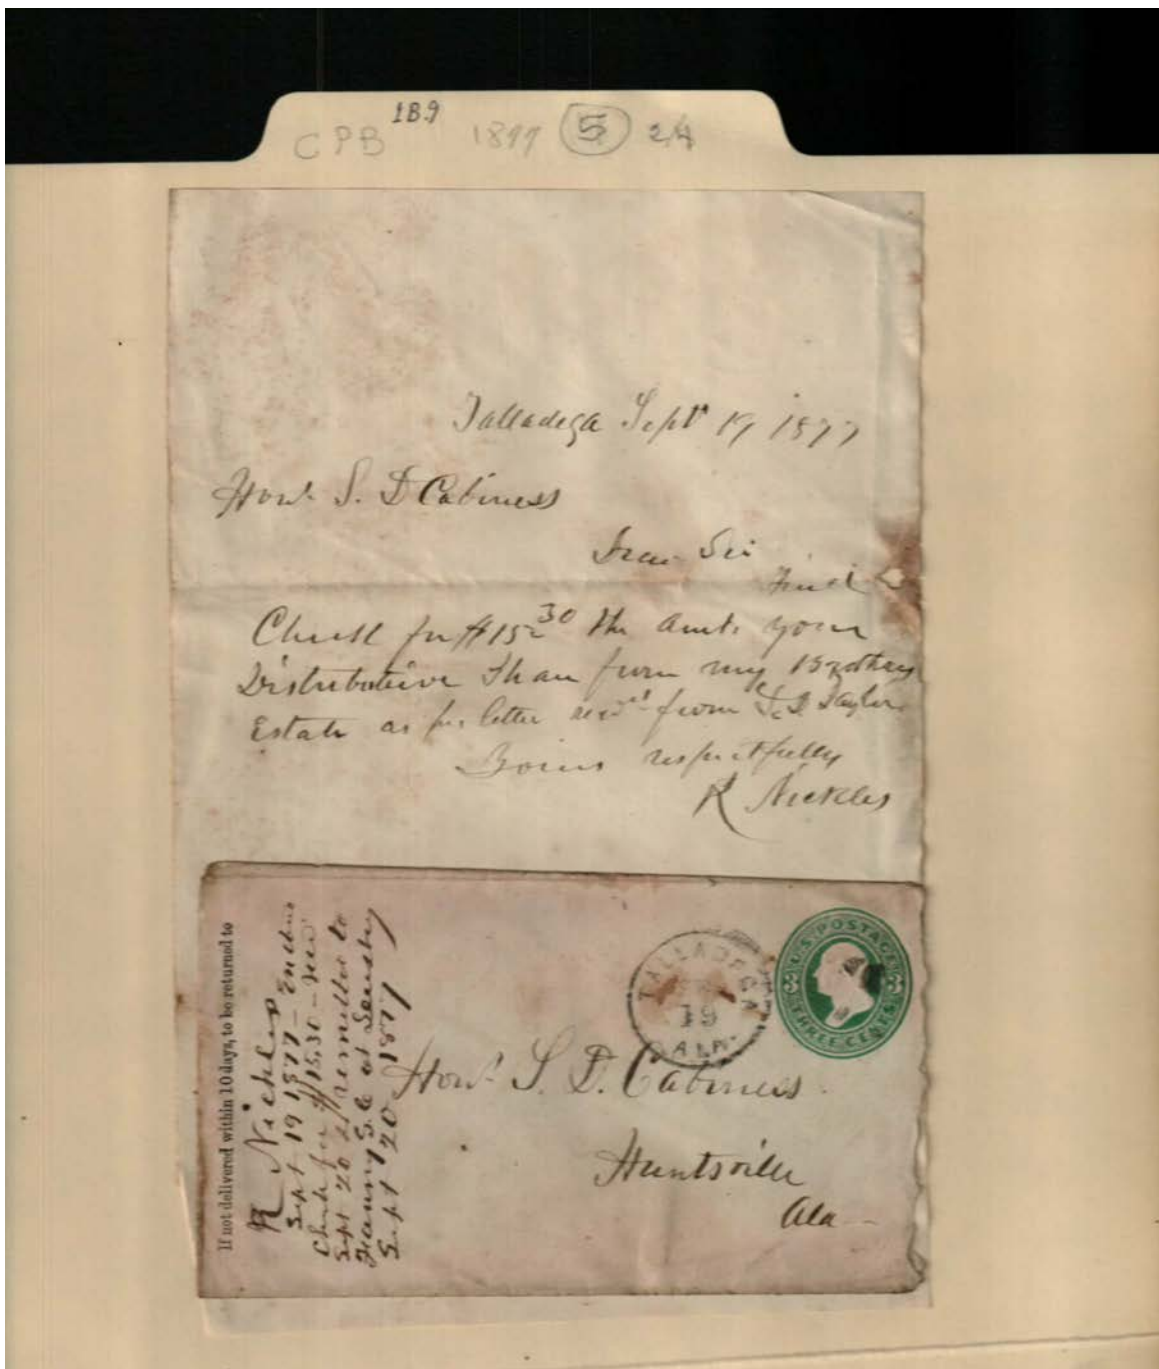 CPB 1B.9 1877 5 24
Talladega Sept 19 1877
Hon. S. D Cabiness
Dear Sir
Find
Check for $15 30 the amt. your
Distributive Share from my Brothers
Estate as per letter recd from Taylor
Yours respectfully
R Nickles
If not delivered within 10 days, to be returned to
R Nickles
Sept 19 1877 -
Check for $15.30 -
Sept 20 remitted to
Fanny at
Sept 20 1877
TALLADEGA
19
ALA.
U.S. POSTAGE
3 3
THREE CENTS
Hon. S. D. Cabiness
Huntsville
Ala